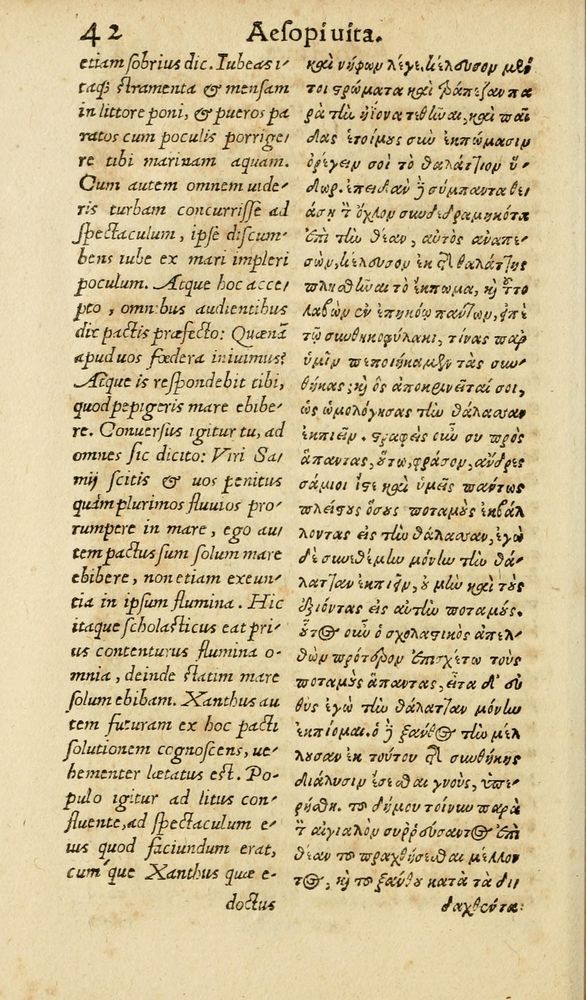 42 Aesopi uita.
etiam sobrius dic. Iubeas i-
taq; stramenta & mensam
in littore poni, & pueros pa
ratos cum poculis porrige-
re tibi marinam aquam.
Cum autem omnem uide-
ris turbam concurrisse ad
spectaculum, ipse discum-
bens iube ex mari impleri
poculum. Atque hoc acce-
pto, omnibus audientibus
dic pactis præfecto: Quænã
apud uos fœdera iniuimus?
Atque is respondebit tibi,
quod pepigeris mare ebibe-
re. Conuersus igitur tu, ad
omnes sic dicito: Viri Sa-
mij scitis & uos penitus
quàm plurimos fluuios pro-
rumpere in mare, ego au
tem pactus sum solum mare
ebibere, non etiam exeun-
tia in ipsum flumina. Hic
itaque scholasticus eat pri-
us contenturus flumina o-
mnia, deinde statim mare
solum ebibam. Xanthus au
tem futuram ex hoc pacti
solutionem cognoscens, ue-
hementer lætatus est. Po-
pulo igitur ad litus con-
fluente, ad spectaculum e-
ius quod faciundum erat,
cumque Xanthus quæ e-
doctus
καὶ νήφων λέγε. κέλευσον μὲν
τοι στρώματα καὶ τράπεζαν πα
ρὰ τὴν ἠϊόνα τεθῆναι, καὶ παῖ
δας ἑτοίμους σὺν ἐκπώμασιν
ὀρέγειν σοι τὸ θαλάττιον ὕ-
δωρ. ἐπειδὰν δὲ σύμπαντα θε-
άσῃ τὸν ὄχλον συνδεδραμηκότα
ἐπὶ τὴν θέαν, αὐτὸς ἀναπε-
σὼν, κέλευσον ἐκ τῆς θαλάττης
πλησθῆναι τὸ ἔκπωμα, καὶ τοῦτο
λαβὼν ἐν ἐπηκόῳ πάντων, εἰπὲ
τῷ συνθηκοφύλακι, τίνας παρ
ὑμῖν πεποιήκαμεν τὰς συν-
θήκας; καὶ ὃς ἀποκρινεῖταί σοι,
ὡς ὡμολόγησας τὴν θάλασσαν
ἐκπιεῖν. στραφεὶς οὖν σὺ πρὸς
ἅπαντας, οὕτω, φράσον, ἄνδρες
σάμιοι ἴστε καὶ ὑμεῖς πάντως
πλείστους ὅσους ποταμοὺς ἐκβάλ
λοντας εἰς τὴν θάλασσαν, ἐγὼ
δὲ συνεθέμην μόνην τὴν θά-
λατταν ἐκπιεῖν, οὐ μὴν καὶ τοὺς
ἐξιόντας εἰς αὐτὴν ποταμούς.
οὗτος οὖν ὁ σχολαστικὸς ἀπελ-
θὼν πρότερον ἐπισχέτω τοὺς
ποταμοὺς ἅπαντας, εἶτα δ' εὐ
θὺς ἐγὼ τὴν θάλατταν μόνην
ἐκπίομαι. ὁ δὲ ξάνθος τὴν μέλ
λουσαν ἐκ τούτου τῆς συνθήκης
διάλυσιν ἔσεσθαι γνοὺς, ὑπερ-
ήσθη. τοῦ δήμου τοίνυν παρὰ
τὸν αἰγιαλὸν συῤῥεύσαντος ἐπὶ
θέαν τοῦ πραχθήσεσθαι μέλλον
τος, καὶ τοῦ ξάνθου κατὰ τὰ δι
δαχθέντα